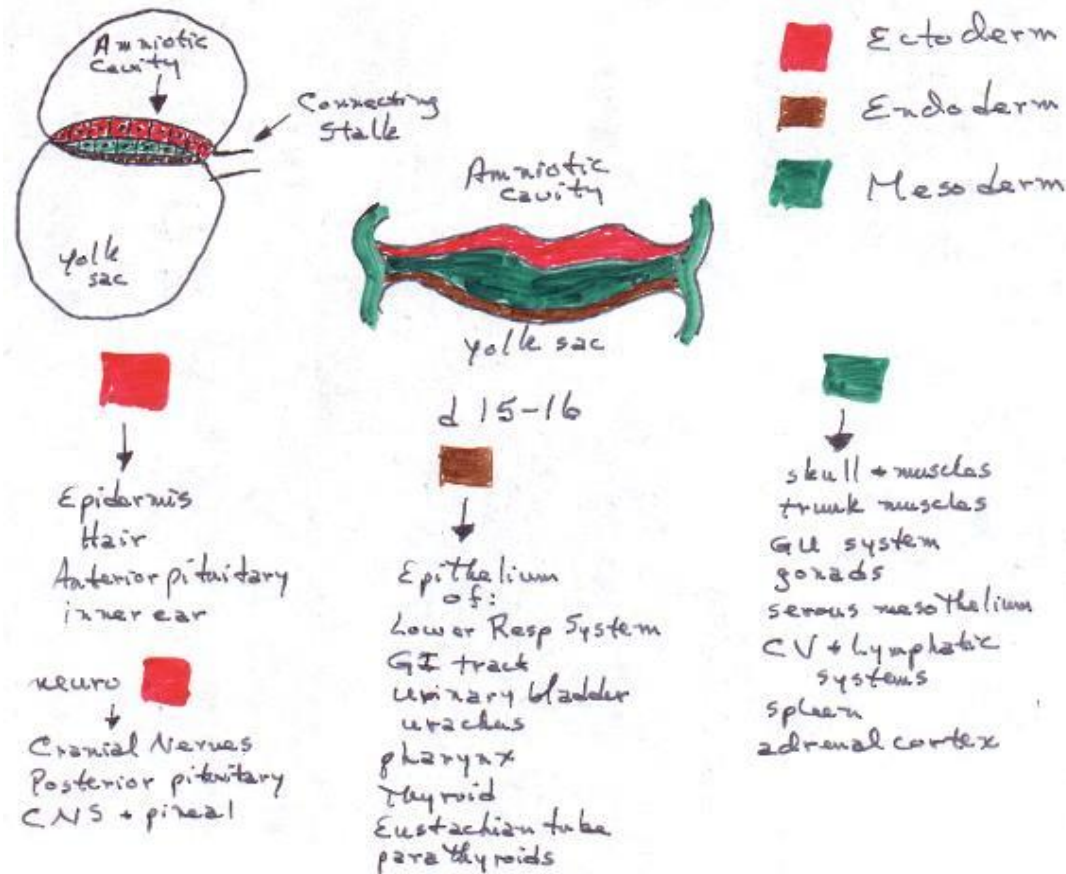 Amniotic
cavity
Connecting
stalk
yolk
sac
Amniotic
cavity
yolk sac
d 15-16
Ectoderm
Endoderm
Mesoderm
Epidermis
Hair
Anterior pituitary
inner ear
neuro
Cranial Nerves
Posterior pituitary
CNS + pineal
Epithelium
of:
Lower Resp System
GI track
urinary bladder
urachus
pharynx
Thyroid
Eustachian tube
parathyroids
skull + muscles
trunk muscles
GU system
gonads
serous mesothelium
CV + Lymphatic
systems
spleen
adrenal cortex